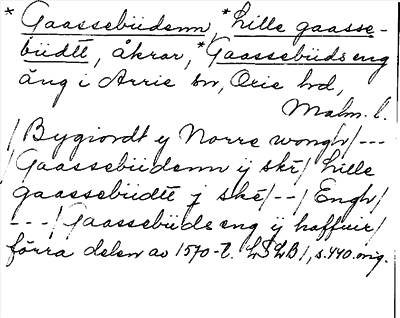 * Gaassebüdenn, * Lille gaasse-
büdtt, åkrar, * Gaassebüdseng
äng i Arrie sn, Oxie hd,
Malm. l.
/ Bygiordt ÿ Norre wongh / ---
/ Gaassebüdenn ÿ skè / Lille
gaassebüdtt j skè / -- / Engh /
--- / Gaassebüdseng ÿ haffuir /
förra delen av 1570-t. LSLB 1, s. 440. orig.